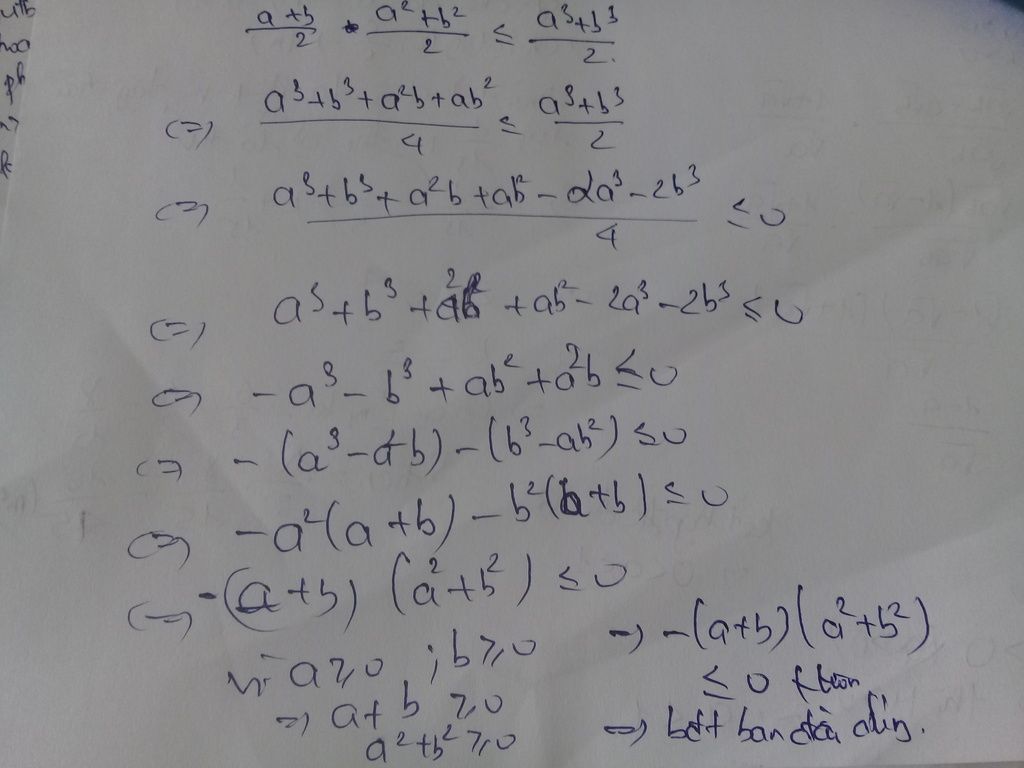 a+b/2 • a²+b²/2 ≤ a³+b³/2.
(=) a³+b³+a²b+ab²/4 ≤ a³+b³/2
(=) a³+b³+a²b+ab²-2a³-2b³/4 ≤ 0
(=) a³+b³+a²b+ab²-2a³-2b³ ≤ 0
(=) -a³-b³+ab²+a²b ≤ 0
(=) -(a³-a²b)-(b³-ab²) ≤ 0
(=) -a²(a+b)-b²(a+b) ≤ 0
(=) -(a+b)(a²+b²) ≤ 0
Vì a ≥ 0 ; b ≥ 0 => -(a+b)(a²+b²)
=> a+b ≥ 0 ≤ 0
a²+b² ≥ 0 => bđt ban đầu đúng.